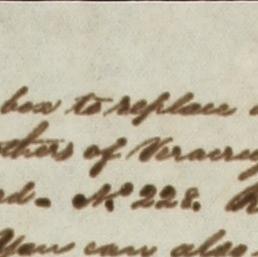 box to replace
others of Veracruz
No 228.
You can also